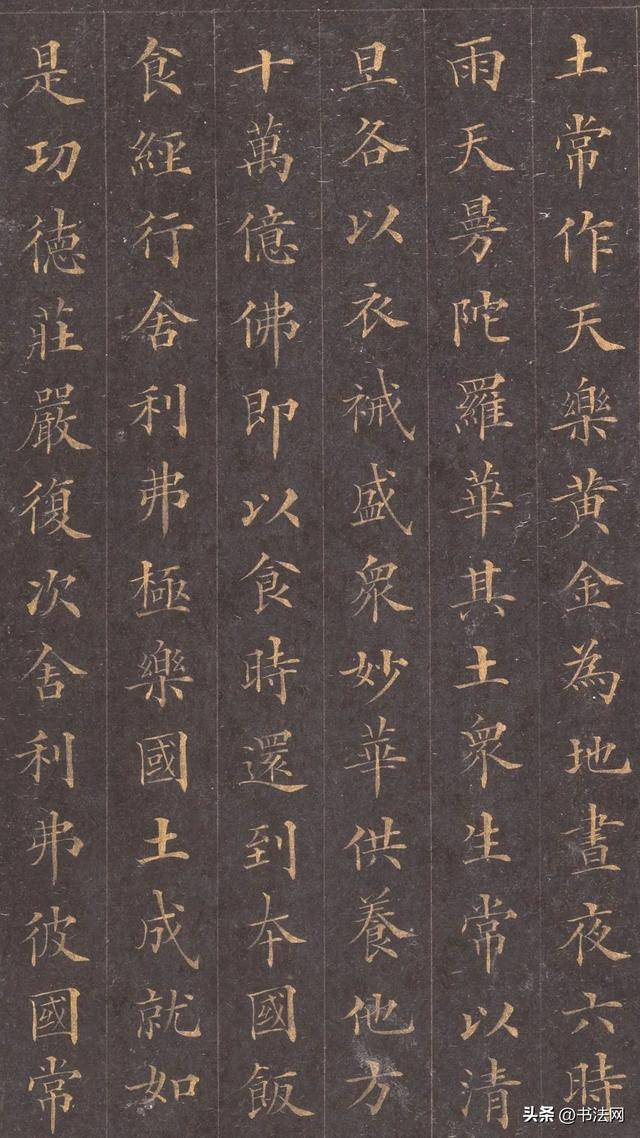 土常作天樂黄金為地晝夜六時
雨天曼陀羅華其土衆生常以清
旦各以衣裓盛衆妙華供養他方
十萬億佛即以食時還到本國飯
食經行舍利弗極樂國土成就如
是功德莊嚴復次舍利弗彼國常
头条 @书法网